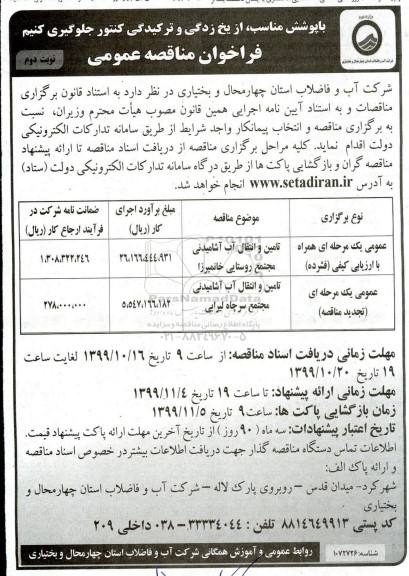 باپوشش مناسب، از یخ زدگی و ترکیدگی کنتور جلوگیری کنیم
فراخوان مناقصه عمومی
نوبت دوم
شرکت آب و فاضلاب استان چهارمحال و بختیاری در نظر دارد به استناد قانون برگزاری
مناقصات و به استناد آیین نامه اجرایی همین قانون مصوب هیأت محترم وزیران، نسبت
به برگزاری مناقصه و انتخاب پیمانکار واجد شرایط از طریق سامانه تدارکات الکترونیکی
دولت اقدام نماید. کلیه مراحل برگزاری مناقصه از دریافت اسناد مناقصه تا ارائه پیشنهاد
مناقصه گران و بازگشایی پاکت ها از طریق درگاه سامانه تدارکات الکترونیکی دولت (ستاد)
به آدرس www.setadiran.ir انجام خواهد شد.
نوع برگزاری
موضوع مناقصه
مبلغ برآورد اجرای کار (ریال)
ضمانت نامه شرکت در فرآیند ارجاع کار (ریال)
عمومی یک مرحله ای همراه با ارزیابی کیفی (فشرده)
تامین و انتقال آب آشامیدنی مجتمع روستایی خانمیرزا
۲۶،۱۶۶،۴۴۴،۹۳۱
۱،۳۰۸،۳۲۲،۲۴۶
عمومی یک مرحله ای (تجدید مناقصه)
تامین و انتقال آب آشامیدنی مجتمع سرچاه لیرابی
۵،۵۴۷،۱۶۶،۱۸۴
۲۷۸،۰۰۰،۰۰۰
پایگاه اطلاع رسانی مناقصه و مزایده
۰۲۱-۸۸۳۴۹۶۷۰-۵
مهلت زمانی دریافت اسناد مناقصه: از ساعت ۹ تاریخ ۱۳۹۹/۱۰/۱۶ لغایت ساعت
۱۹ تاریخ ۱۳۹۹/۱۰/۲۰
مهلت زمانی ارائه پیشنهاد: تا ساعت ۱۹ تاریخ ۱۳۹۹/۱۱/۴
زمان بازگشایی پاکت ها: ساعت ۹ تاریخ ۱۳۹۹/۱۱/۵
تاریخ اعتبار پیشنهادات: سه ماه (۹۰ روز) از تاریخ آخرین مهلت ارائه پاکت پیشنهاد قیمت.
اطلاعات تماس دستگاه مناقصه گذار جهت دریافت اطلاعات بیشتر در خصوص اسناد مناقصه
و ارائه پاک الف:
شهرکرد- میدان قدس – روبروی پارک لاله – شرکت آب و فاضلاب استان چهارمحال و
بختیاری
کد پستی ۸۸۱۴۶۴۹۹۱۳ تلفن : ۳۳۳۳۴۰۴۴ – ۰۳۸ داخلی ۲۰۹
شناسه: ۱۰۷۲۷۲۶
روابط عمومی و آموزش همگانی شرکت آب و فاضلاب استان چهارمحال و بختیاری